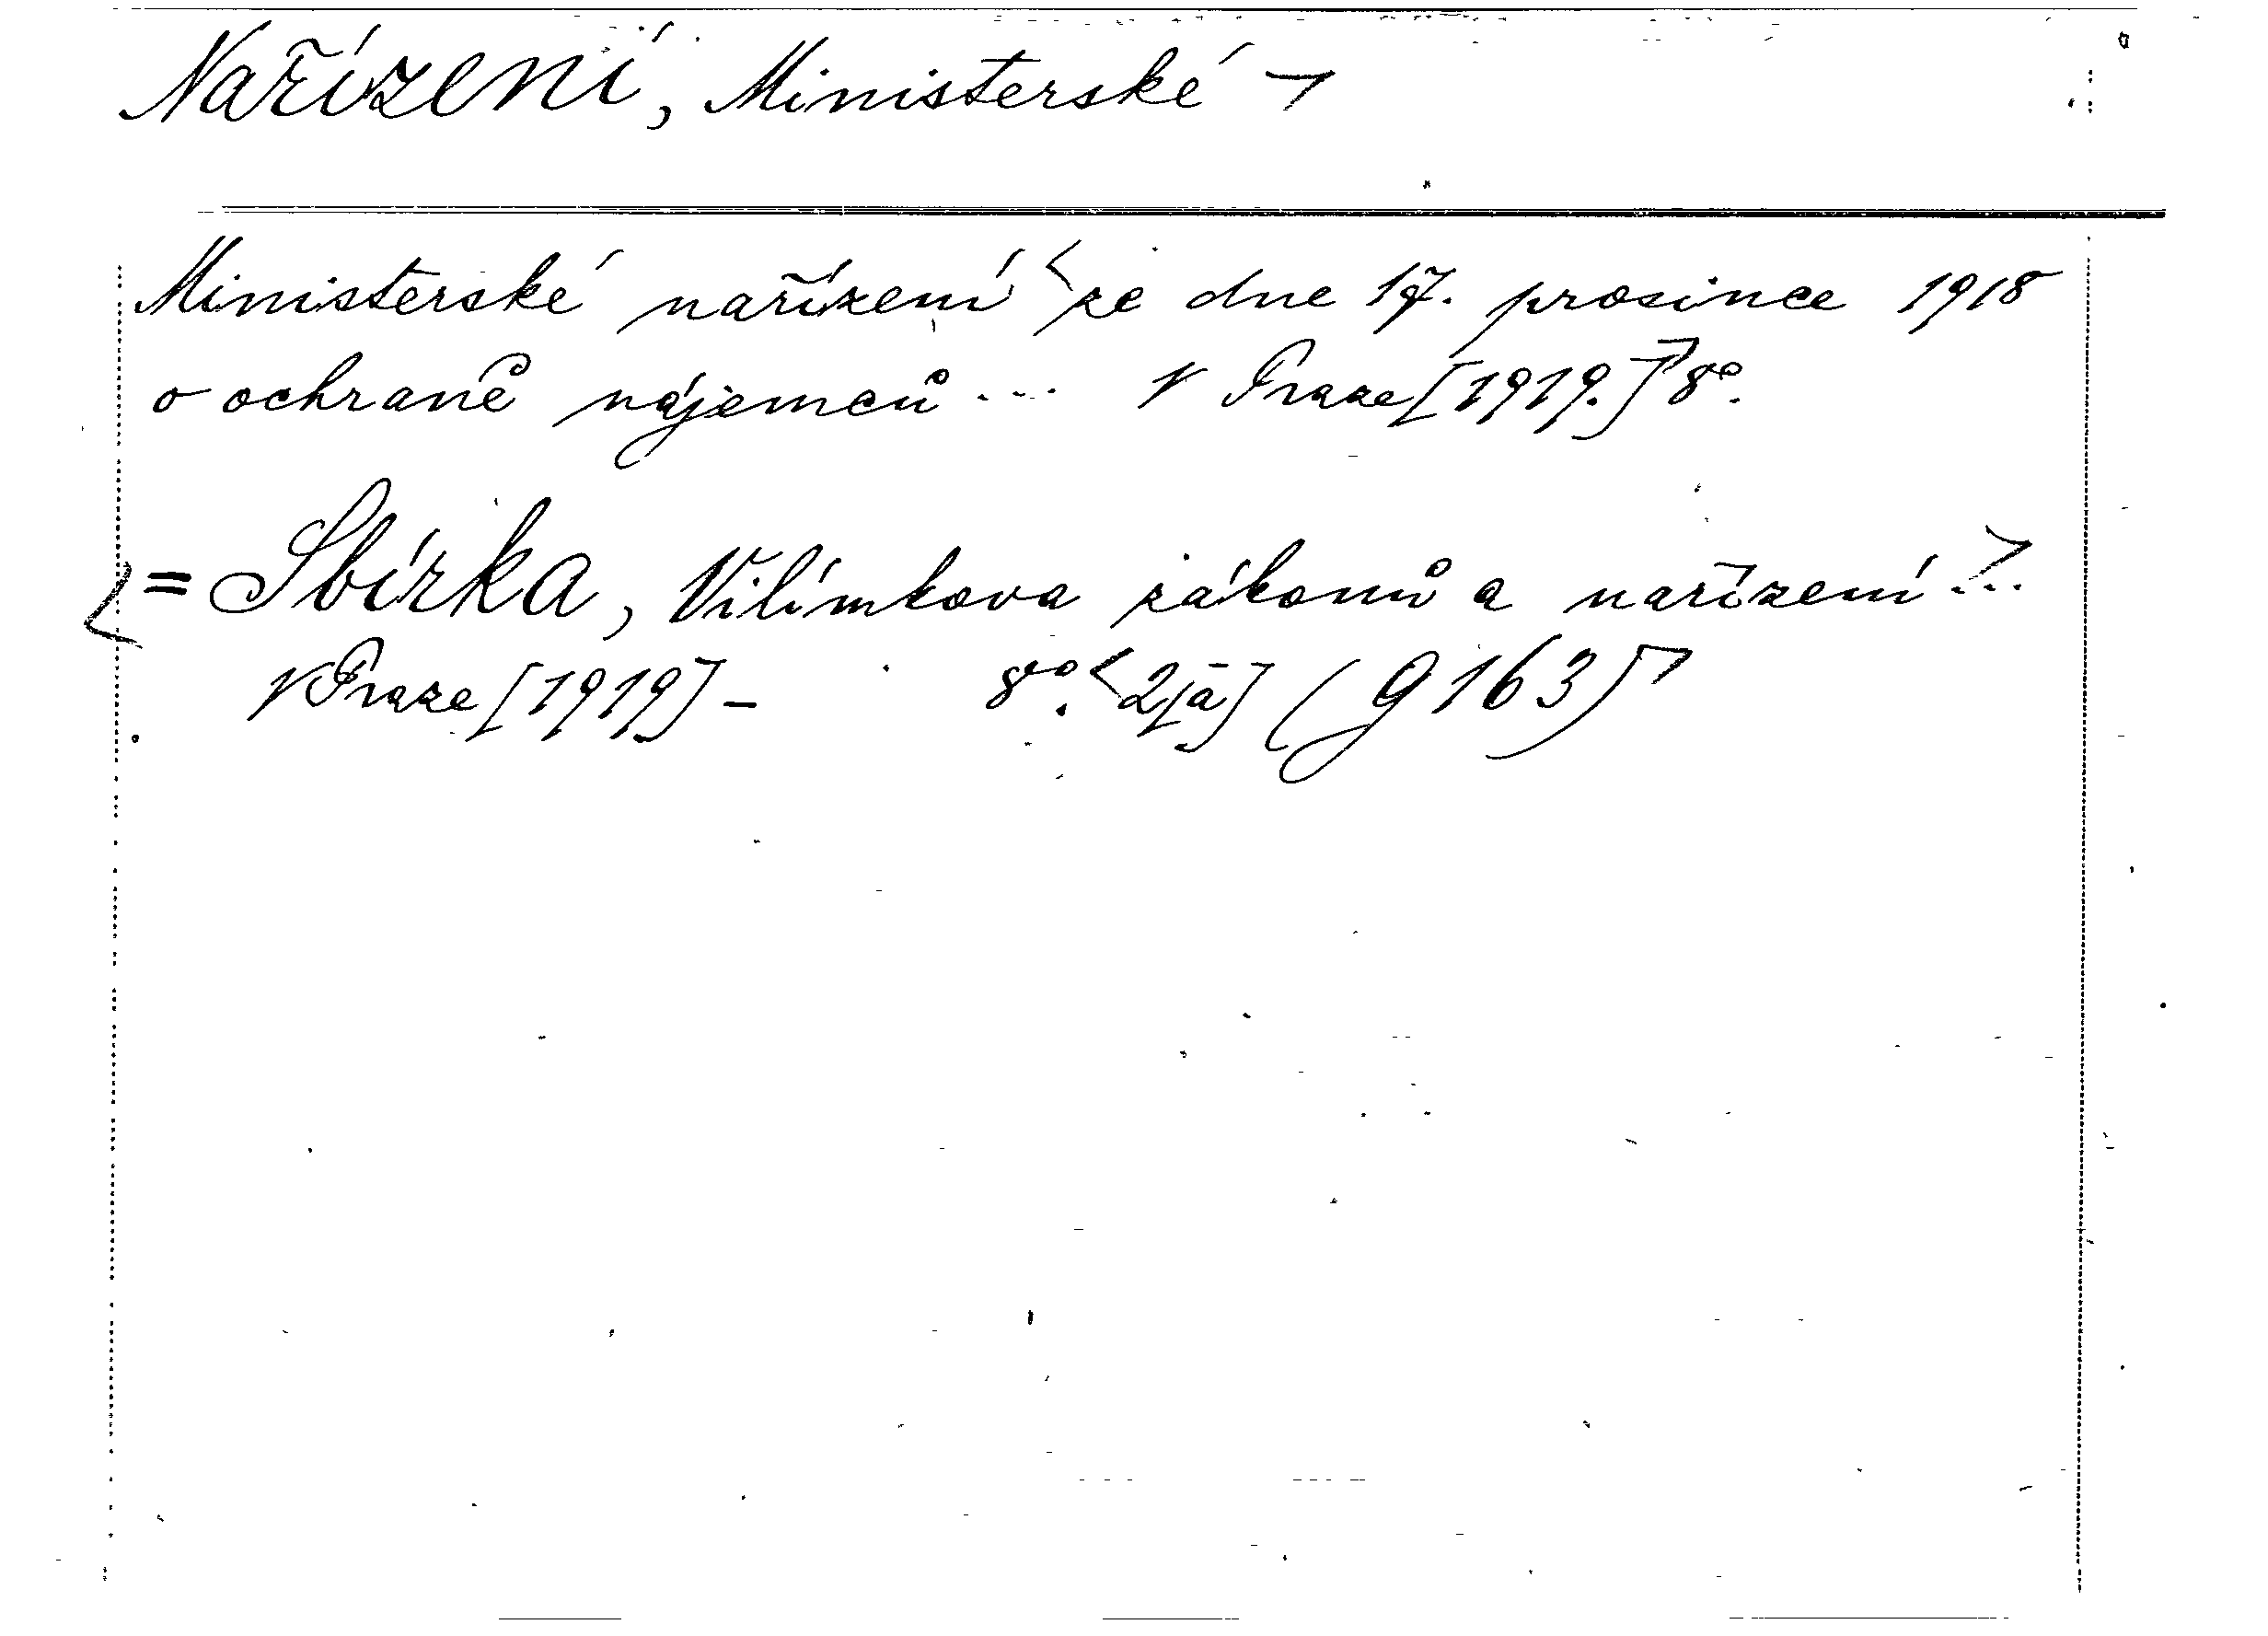 Nařízení, Ministerské >
Ministerské nařízení < ze dne 17. prosince 1918
o ochraně nájemců ... V Praze [1919.] > 8°.
< = Sbírka, Vilímkova zákonů a nařízení ... >
V Praze [1919] - 8°. < 2[á] (G 163) >